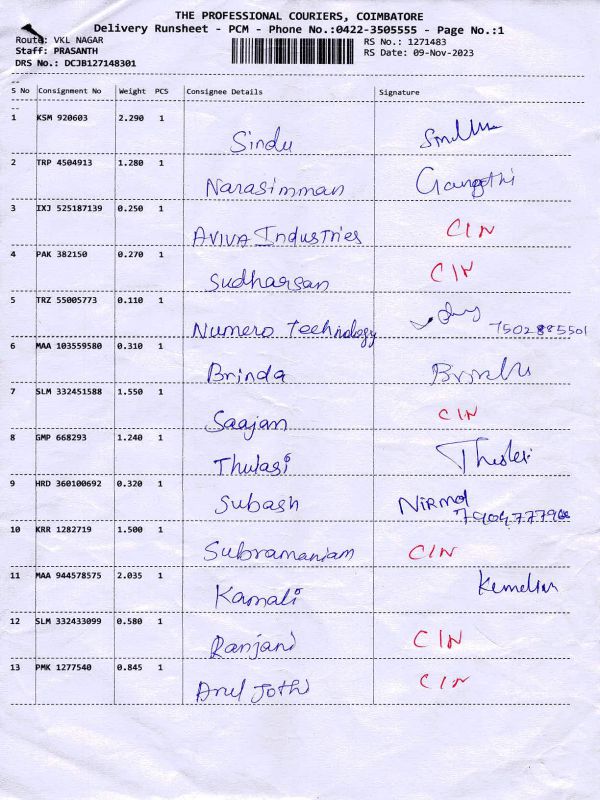 THE PROFESSIONAL COURIERS, COIMBATORE
Delivery Runsheet - PCM - Phone No.:0422-3505555 - Page No.:1
Route: VKL NAGAR RS No.: 1271483
Staff: PRASANTH RS Date: 09-Nov-2023
DRS No.: DCJB127148301
S No Consignment No Weight PCS Consignee Details Signature
1 KSM 920603 2.290 1
Sindu
2 TRP 4504913 1.280 1
Narasimman Gangothi
3 IXJ 525187139 0.250 1
AVIVA Industries CIN
4 PAK 382150 0.270 1
Sudharsan CIN
5 TRZ 55005773 0.110 1
Numero Technology 7502885501
6 MAA 103559580 0.310 1
Brinda
7 SLM 332451588 1.550 1
Saajan CIN
8 GMP 668293 1.240 1
Thulasi
9 HRD 360100692 0.320 1
Subash NIRMAL
10 KRR 1282719 1.500 1
Subramaniam CIN
11 MAA 944578575 2.035 1
Kamali
12 SLM 332433099 0.580 1
Ranjani CIN
13 PMK 1277540 0.845 1
Arul Jothi CIN